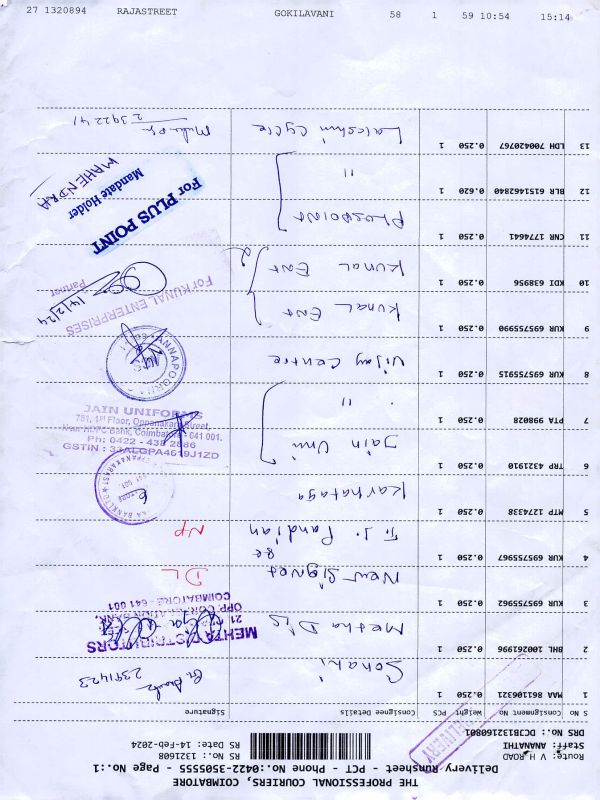 27 1320894 RAJASTREET GOKILAVANI 58 1 59 10:54 15:14
THE PROFESSIONAL COURIERS, COIMBATORE
Delivery Runsheet - PCT - Phone No.:0422-3505555 - Page No.:1
Route: V H ROAD
Staff: AMANATHI
DRS No.: DCB132160801
RS No.: 1321608
RS Date: 14-Feb-2024
DELIVERY
S No Consignment No Weight PCS Consignee Details Signature
1 MAA 861106321 0.250 1 Sonani 2391423
2 BHL 100261996 0.250 1 Mesha D's
MEHTA DISTRIBUTORS
21
OPP. CORPORATION BANK,
COIMBATORE - 641 001
3 KUR 695755962 0.250 1 New Signet DL
4 KUR 695755967 0.250 1 T. J. Pandian NP
5 MTP 1274338 0.250 1 Karnataga
6 TRP 4321910 0.250 1 Jain Uni
JAIN UNIFORMS
781, 1st Floor, Oppanakara Street,
Near HDFC Bank, Coimbatore - 641 001.
Ph: 0422 - 438 2886
GSTIN : 33ALGPA4619J1ZD
7 PTA 998028 0.250 1 "
8 KUR 695755915 0.250 1 Vijay Centre
ANNAPOORN
9 KUR 695755990 0.250 1 Kunal Ent
10 KDI 638956 0.250 1 Kunal Ent 2
For KUNAL ENTERPRISES
14/2/24
Partner
11 CNR 1774641 0.250 1 Pluspoint
For PLUS POINT
Mandate Holder
MAHENDRA
12 BLR 6151462840 0.620 1 "
13 LDH 700420767 0.250 1 Lakshmi Cycle
2392241